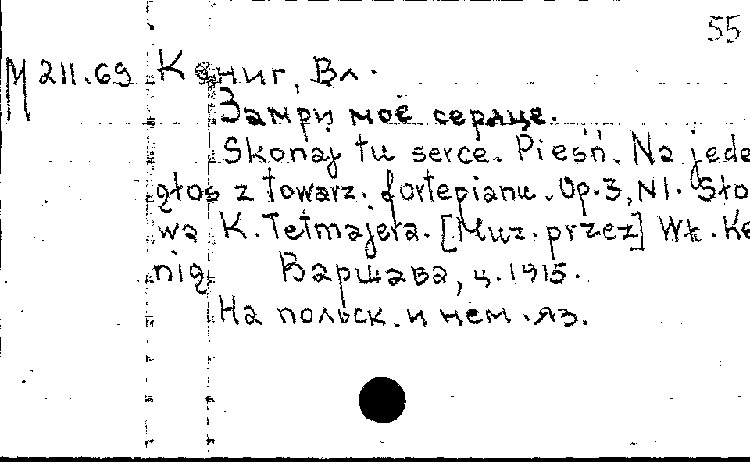 55
М 211.69 Кениг, Вл.
Замри моё сердце.
Skonaj tu serce. Pieśń. Na jede
głos z towarz. fortepianu. Op. 3, N1. Sło
wa K. Tetmajera. [Muz. przez] Wł. Ke
nig. Варшава, ц. 1915.
На польск. и нем. яз.